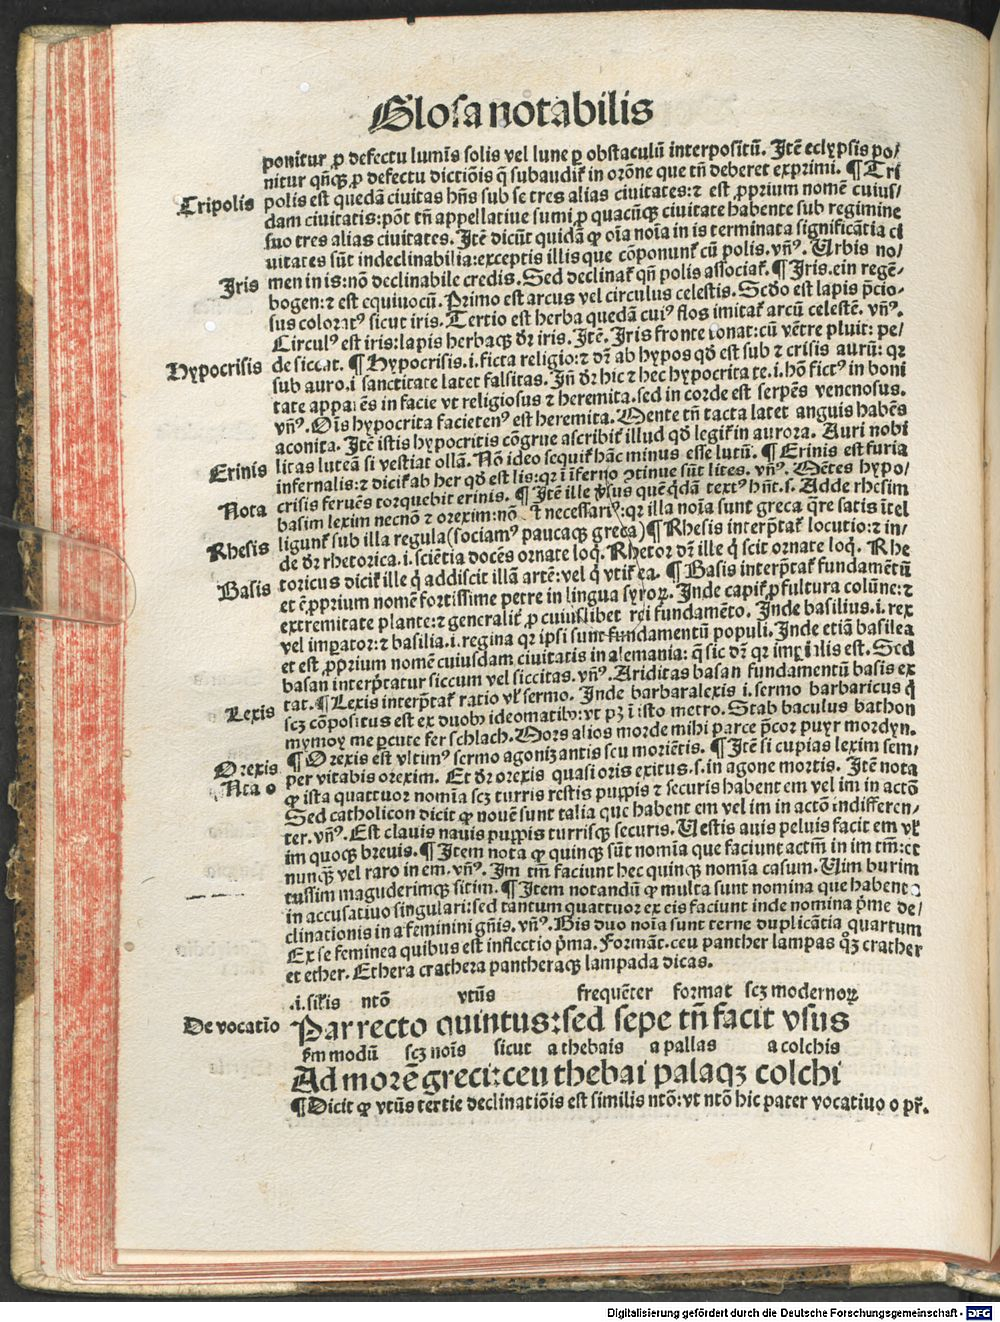 Glosa notabilis
ponitur ꝓ defectu lumīs solis vel lune ꝑ obstaculū interpositū. Itē eclypsis po/
nitur qñqꝫ ꝓ defectu dictiōis q̄ subaudiꝉ in orōne que tñ deberet exprimi. ¶ Tri
Tripolis
polis est quedā ciuitas hñs sub se tres alias ciuitates: ⁊ est ꝓprium nomē cuius/
dam ciuitatis: pōt tñ appellatiue sumi ꝓ quacūqꝫ ciuitate habente sub regimine
suo tres alias ciuitates. Itē dicūt quidā ꝙ oīa noīa in is terminata significātia ci
uitates sūt indeclinabilia: exceptis illis que cōponunꝉ cū polis. vñꝰ. Urbis no/
Iris
men in is: nō declinabile credis. Sed declinaꝉ qñ polis associaꝉ. ¶ Iris. ein regē-
bogen: ⁊ est equiuocū. Primo est arcus vel circulus celestis. Scd̄o est lapis p̄cio-
sus coloratꝰ sicut iris. Tertio est herba quedā cuiꝰ flos imitaꝉ arcū celestē. vñꝰ.
Circulꝰ est iris: lapis herbaqꝫ d̄r iris. Itē. Iris fronte tonat: cū vētre pluit: pe/
Hypocrisis
de siccat. ¶ Hypocrisis. i. ficta religio: ⁊ dꝛ̄ ab hypos qd̄ est sub ⁊ crisis aurū: qꝛ
sub auro. i sanctitate latet falsitas. Iñ d̄r hic ⁊ hec hypocrita te. i. hō fictꝰ in boni
tate apparēs in facie vt religiosus ⁊ heremita. sed in corde est serpēs venenosus.
vñꝰ. Oīs hypocrita facietenꝰ est heremita. Mente tñ tacta latet anguis habēs
aconita. Itē istis hypocritis cōgrue ascribiꝉ illud qd̄ legiꝉ in aurora. Auri nobi
Erinis
litas luteā si vestiat ollā. Nō ideo sequiꝉ hāc minus esse lutū. ¶ Erinis est furia
infernalis: ⁊ diciꝉ ab her qd̄ est lis: qꝛ ī īferno ꝯtinue sūt lites. vñꝰ. Mētes hypo/
Nota
crisis feruēs torquebit erinis. ¶ Itē ille v̓sus quē q̄dā textꝰ hñt. s. Adde rhesim
basim lexim necnō ⁊ orexim: nō ē necessariꝰ: qꝛ illa noīa sunt greca q̄re satis ītel
Rhesis
ligunꝉ sub illa regula (sociamꝰ paucaqꝫ greca) ¶ Rhesis interp̄taꝉ locutio: ⁊ in-
de d̄r rhetorica. i. sciētia docēs ornate loq̄. Rhetor dꝛ̄ ille q̄ scit ornate loq̄. Rhe
Basis
toricus diciꝉ ille q̄ addiscit illā artē: vel q̄ vtiꝉ ea. ¶ Basis interp̄taꝉ fundamētū
et ē ꝓprium nomē fortissime petre in lingua syroꝝ. Inde capiꝉ ꝓ fultura colūne: ⁊
extremitate plante: ⁊ generaliꝉ ꝓ cuiuslibet rei fundamēto. Inde basilius. i. rex
vel impator: ⁊ basilia. i. regina qꝛ ipsi sunt fundamentū populi. Inde etiā basilea
et est ꝓprium nomē cuiusdam ciuitatis in alemania: q̄ sic dꝛ̄ qꝛ imꝑialis est. Sed
basan interp̄tatur siccum vel siccitas. vñꝰ. Ariditas basan fundamentū basis ex
Lexis
tat. ¶ Lexis interp̄taꝉ ratio vꝉ sermo. Inde barbaralexis i. sermo barbaricus q̄
scꝫ cōpositus est ex duobꝰ ideomatibꝰ: vt pꝫ ī isto metro. Stab baculus bathon
mymoy me ꝑcute fer schlach. Mors alios morde mihi parce p̄cor puyr mordyn.
Orexis
¶ Orexis est vltimꝰ sermo agonizantis seu moriētis. ¶ Itē si cupias lexim sem-
Nta o
per vitabis orexim. Et d̄r orexis quasi oris exitus. s. in agone mortis. Itē nota
ꝙ ista quattuor nomīa scꝫ turris restis puppis ⁊ securis habent em vel im in actō
Sed catholicon dicit ꝙ nouē sunt talia que habent em vel im in actō indifferen-
ter. vñꝰ. Est clauis nauis puppis turrisqꝫ securis. Uestis auis peluis facit em vꝉ
im quoqꝫ breuis. ¶ Item nota ꝙ quinqꝫ sūt nomīa que faciunt actīm in im tm̄: et
nunqꝫ vel raro in em. vñꝰ. Im tm̄ faciunt hec quinqꝫ nomīa casum. Uim burim
tussim maguderimqꝫ sitim. ¶ Item notandū ꝙ multa sunt nomina que habent a
in accusatiuo singulari: sed tantum quattuor ex eis faciunt inde nomina p̄me de/
clinationis in a feminini gn̄is. vñꝰ. Bis duo noīa sunt terne duplicātia quartum
Ex se feminea quibus est inflectio p̄ma. Formāt. ceu panther lampas qꝫ̊ crather
et ether. Ethera crathera pantheraqꝫ lampada dicas.
.i. silꝉis ntō vtūs frequēter format scꝫ modernoꝝ
De vocatīo
Par recto quintus: sed sepe tñ facit vsus
ẜm modū scꝫ noīs sicut a thebais a pallas a colchis
Ad morē greci: ceu thebai palaqꝫ colchi
¶ Dicit ꝙ vtūs tertie declinatiōis est similis ntō: vt ntō hic pater vocatiuo o pꝛ̄.
Digitalisierung gefördert durch die Deutsche Forschungsgemeinschaft - DFG